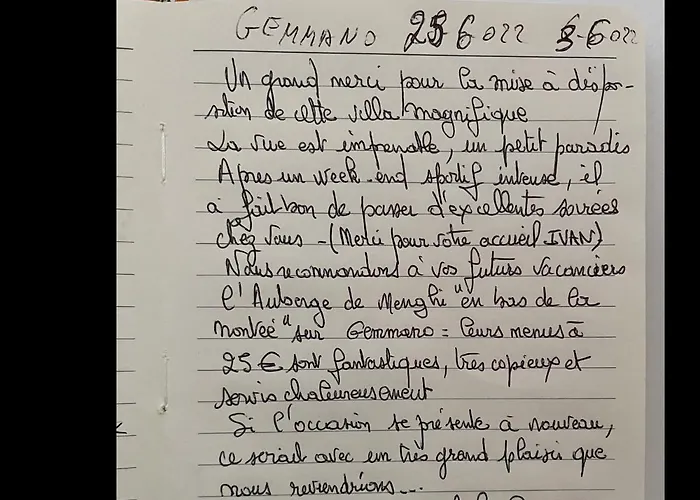 GEMMANO 25 6022 6-6022
Un grand merci pour la mise à dispo-
sition de cette villa magnifique
La vue est imprenable, un petit paradis
Apres un week-end sportif intense, il
a fait bon de passer d'excellentes soirées
chez vous - (Merci pour votre accueil IVAN)
Nous recommandons à vos futurs vacanciers
l'Auberge de Menghi "en bas de la
montée" sur Gemmano = leurs menus à
25 € sont fantastiques, très copieux et
servis chaleureusement
Si l'occasion se présente à nouveau,
ce serait avec un très grand plaisir que
nous reviendrions...